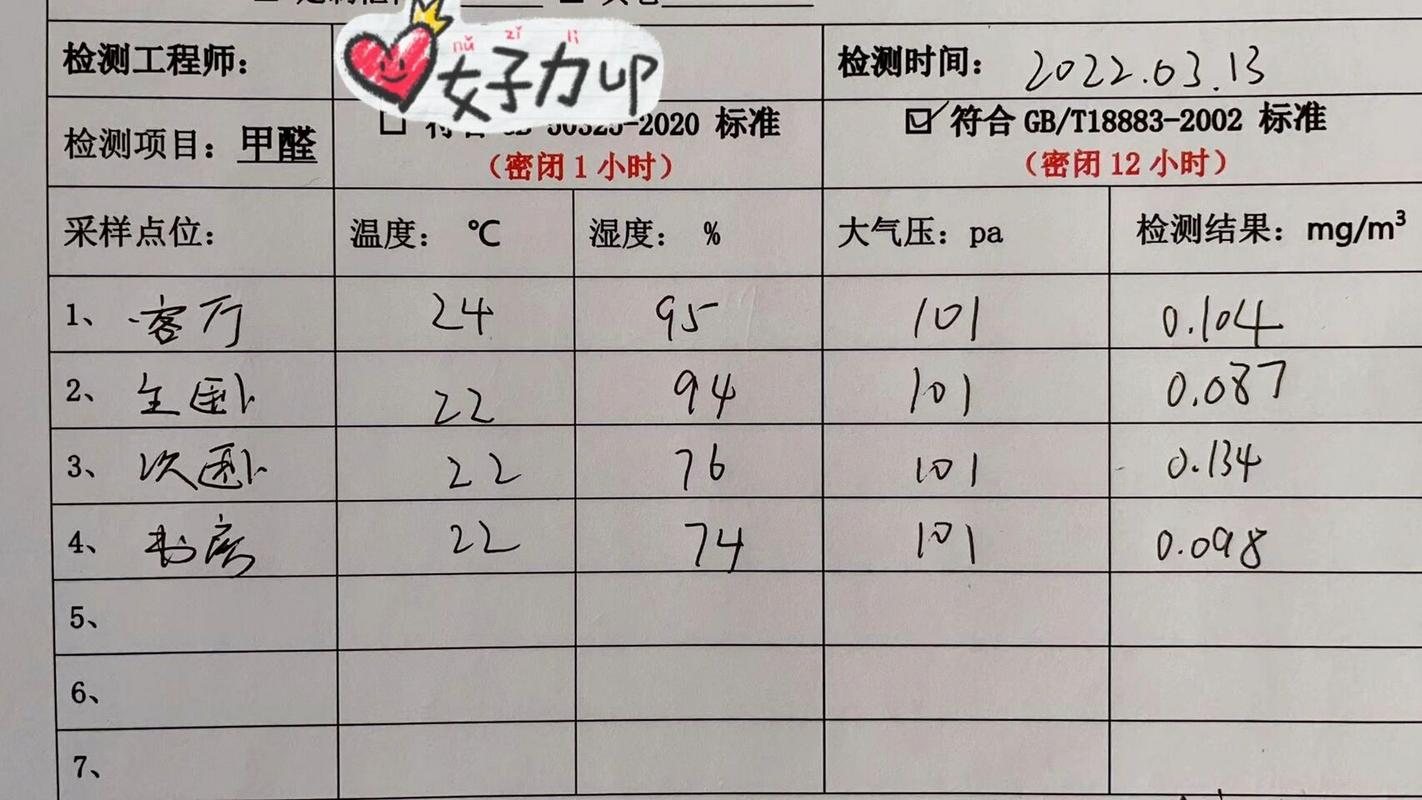 检测工程师：
nǚ zǐ lì
女子力up
检测时间：2022.03.13
检测项目：甲醛
符合 GB 50325-2020 标准
（密闭 1 小时）
☑符合 GB/T18883-2002 标准
（密闭 12 小时）
采样点位： 温度： ℃ 湿度： % 大气压：pa 检测结果：mg/m³
1、客厅 24 95 101 0.104
2、主卧 22 94 101 0.087
3、次卧 22 76 101 0.134
4、书房 22 74 101 0.098
5、
6、
7、